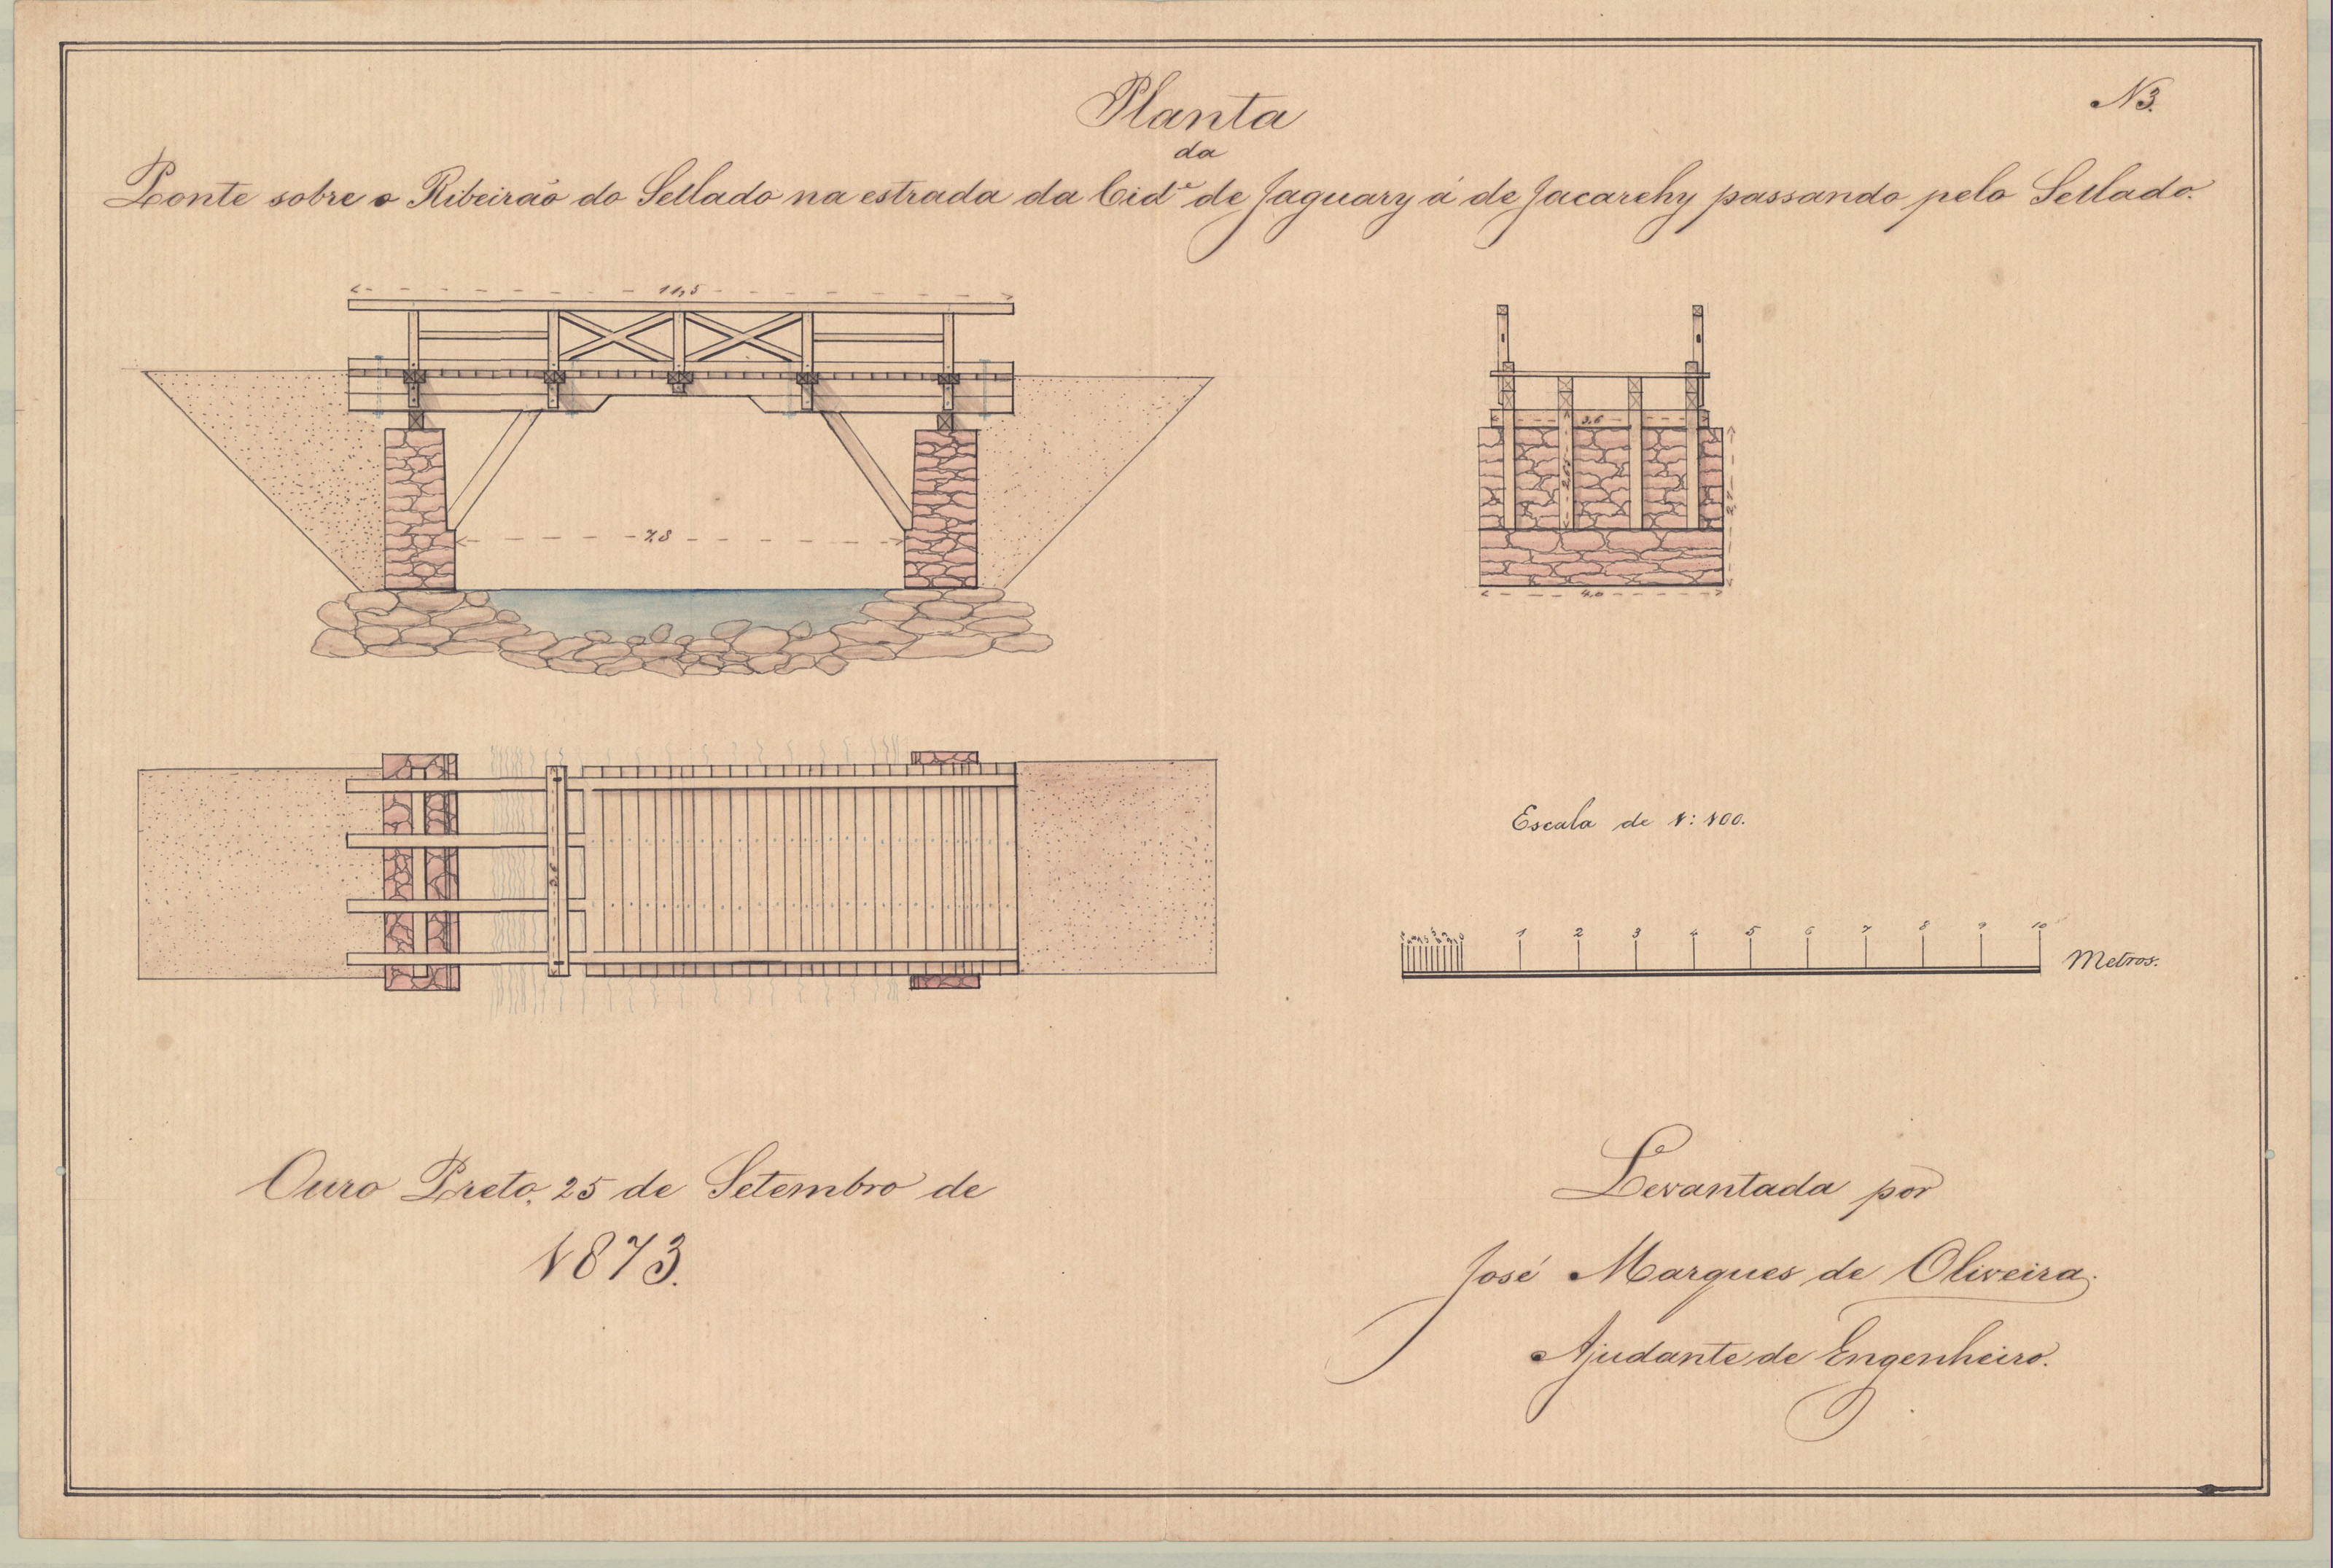 Planta
N3.
da
Ponte sobre o Ribeirão do Sellado na estrada da Cidᵉ de Jaguary á de Jacarehy passando pelo Sellado.
11,5
3,6
7,8
4,0
3,6
Escala de 1:100.
1 2 3 4 5 6 7 8 9 10
Metros.
Ouro Preto, 25 de Setembro de
1873.
Levantada por
José Marques de Oliveira.
Ajudante de Engenheiro.